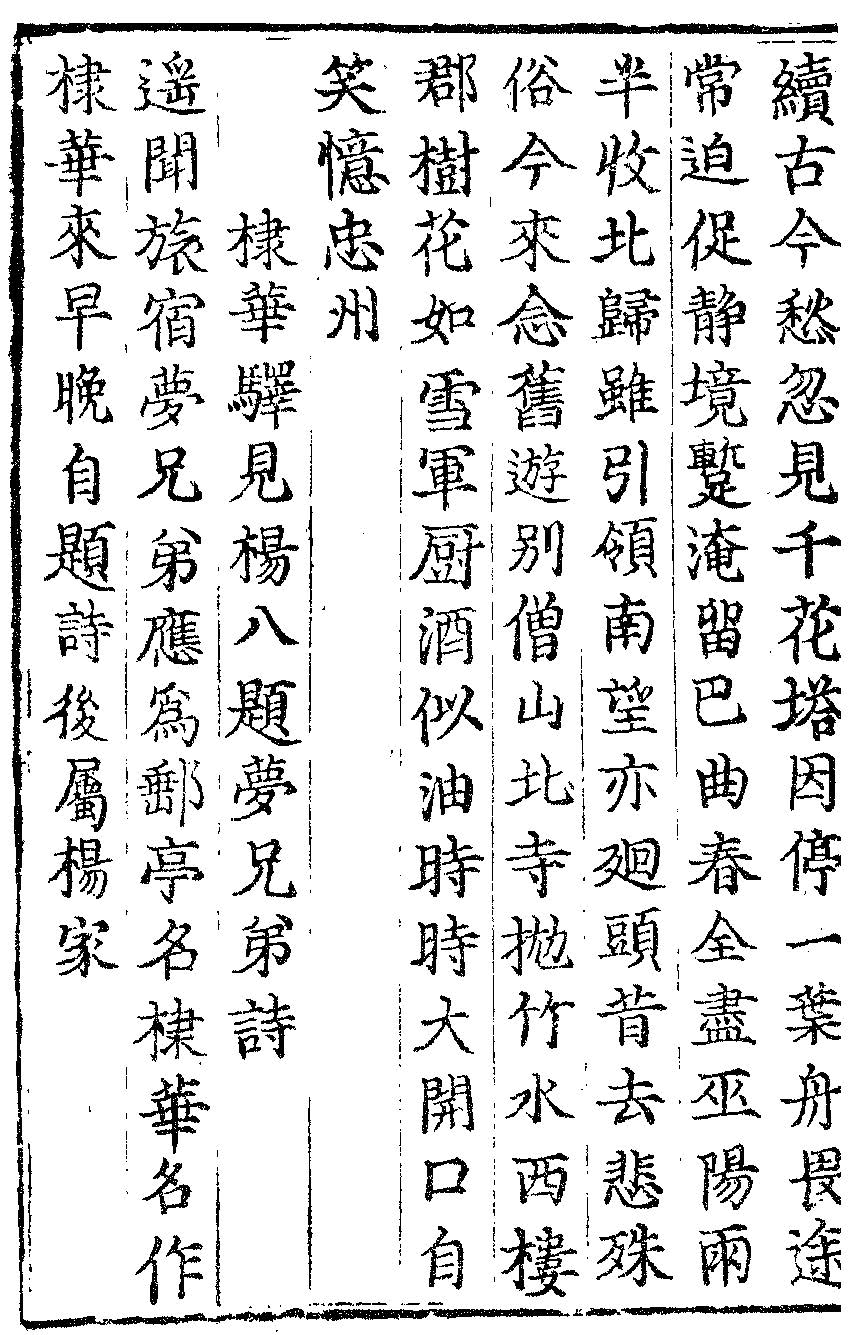 續古今愁忽見千花塔因停一葉舟畏途
常迫促静境蹔淹留巴曲春全盡巫陽雨
半收北歸雖引領南望亦廻頭昔去悲殊
俗今來念舊遊别僧山北寺抛竹水西樓
郡樹花如雪軍厨酒似油時時大開口自
笑憶忠州
棣華驛見楊八題夢兄弟詩
遥聞旅宿夢兄弟應爲郵亭名棣華名作
棣華來早晚自題詩後屬楊家